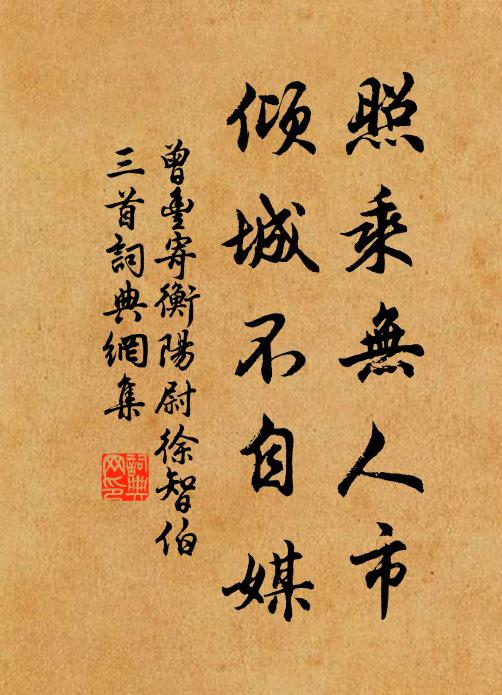 照乘無人市
傾城不自媒
曾豐寄衡陽尉徐智伯
三首詞典網集
詞典網印